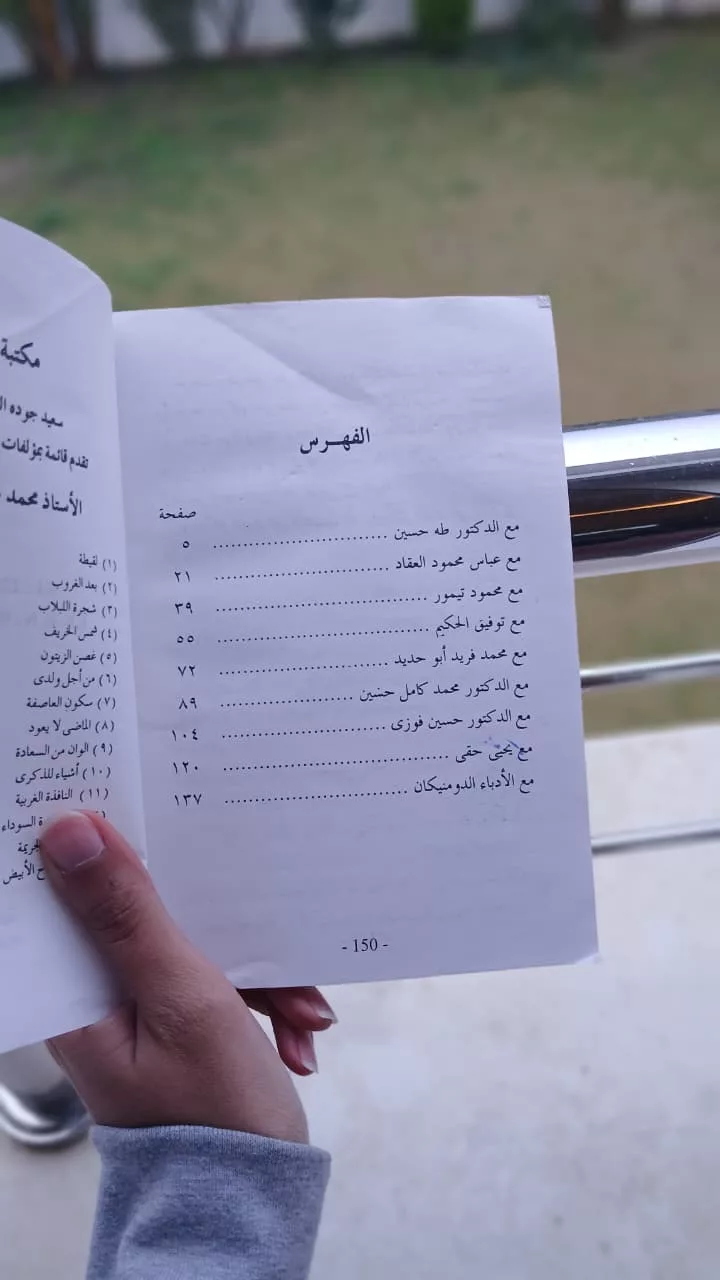 الفهـرس
صفحة
مع الدكتور طه حسين ............................ ٥
مع عباس محمود العقاد ............................ ٢١
مع محمود تيمور ................................. ٣٩
مع توفيق الحكيم ................................. ٥٥
مع محمد فريد أبو حديد .......................... ٧٢
مع الدكتور محمد كامل حسين ..................... ٨٩
مع الدكتور حسين فوزى ......................... ١٠٤
مع يحيى حقى .................................. ١٢٠
مع الأدباء الدومنيكان ........................... ١٣٧
- 150 -
مكتبة
سعيد جوده
تقدم قائمة بمؤلفات
الأستاذ محمد
(١) لقيطة
(٢) بعد الغروب
(٣) شجرة اللبلاب
(٤) شمس الخريف
(٥) غصن الزيتون
(٦) من أجل ولدى
(٧) سكون العاصفة
(٨) الماضى لا يعود
(٩) الوان من السعادة
(١٠) أشياء للذكرى
(١١) النافذة الغربية
السوداء
الأبيض